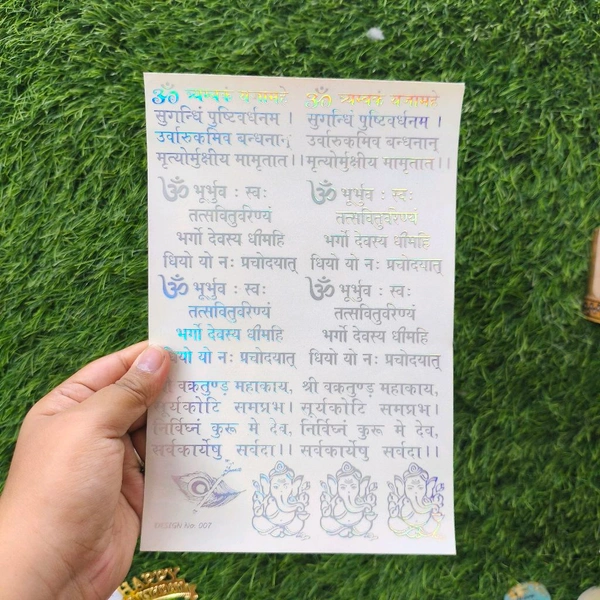 ॐ त्र्यम्बकं यजामहे
सुगन्धिं पुष्टिवर्धनम ।
उर्वारुकमिव बन्धनान्
मृत्योर्मुक्षीय मामृतात।।
ॐ त्र्यम्बकं यजामहे
सुगन्धिं पुष्टिवर्धनम ।
उर्वारुकमिव बन्धनान्
मृत्योर्मुक्षीय मामृतात।।
ॐ भूर्भुव : स्वः
तत्सवितुर्वरेण्यं
भर्गो देवस्य धीमहि
धियो यो नः प्रचोदयात्
ॐ भूर्भुव : स्वः
तत्सवितुर्वरेण्यं
भर्गो देवस्य धीमहि
धियो यो नः प्रचोदयात्
ॐ भूर्भुव : स्वः
तत्सवितुर्वरेण्यं
भर्गो देवस्य धीमहि
धियो यो नः प्रचोदयात्
ॐ भूर्भुव : स्वः
तत्सवितुर्वरेण्यं
भर्गो देवस्य धीमहि
धियो यो नः प्रचोदयात्
श्री वक्रतुण्ड महाकाय,
सूर्यकोटि समप्रभ।
निर्विघ्नं कुरू मे देव,
सर्वकार्येषु सर्वदा।।
श्री वक्रतुण्ड महाकाय,
सूर्यकोटि समप्रभ।
निर्विघ्नं कुरू मे देव,
सर्वकार्येषु सर्वदा।।
DESIGN No. 007
HAPPY